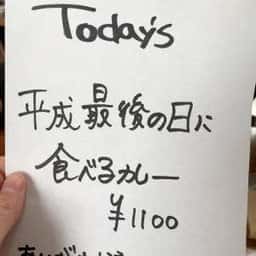 Today's
平成最後の日に
食べるカレー
¥1100